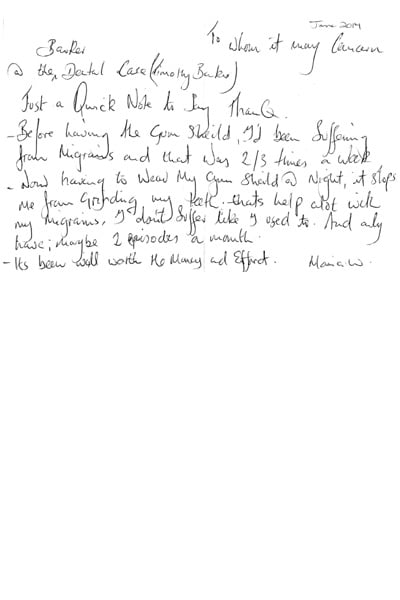 June 2014
To whom it may Concern
Barker
@ the Dental Care (Timothy Barker)
Just a Quick Note to Say ThanQ.
- Before having the Gum Sheild, I'd been Suffering
from Migrains and that was 2/3 times a week
- Now having to Wear My Gum Sheild @ Night, it stops
me from Grinding my teeth. thats help alot with
my Migrains, I don't Suffer like I used to. And only
have; maybe 2 episodes a month.
- Its been well worth the Money and Effort. Maria.W.